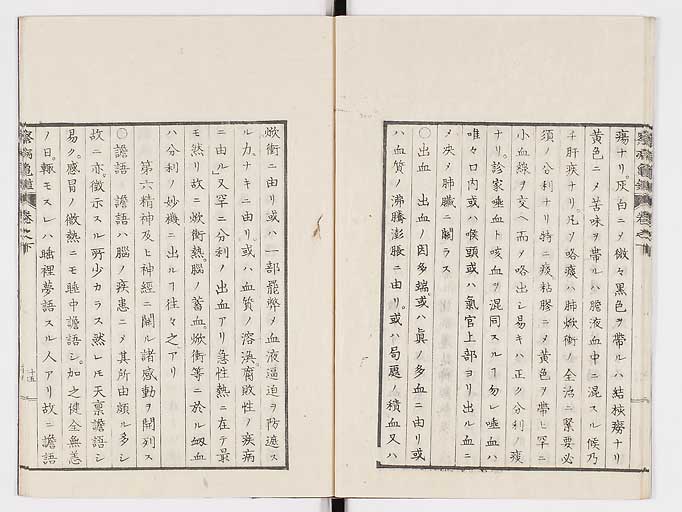 瘍ナリ。灰白ニ〆微々黒色ヲ帶ルハ結核癆ナリ
黄色ニ〆苦味ヲ帶ルハ膽液血中ニ混スル候乃
チ肝疾ナリ。凡ソ咯痰ハ肺焮衝ノ全治ニ緊要必
須ノ分利ナリ特ニ痰粘膠ニ〆黄色ヲ帶ヒ罕ニ
小血線ヲ交ヘ而〆咯出シ易キハ正ク分利ノ痰
ナリ。診家唾血ト咳血ヲ混同スルヿ勿レ唾血ハ
唯々口内或ハ喉頭或ハ氣官上部ヨリ出ル血ニ
〆决〆肺臟ニ關ラス
〇出血　出血ノ因多端或ハ眞ノ多血ニ由リ或
ハ血質ノ沸騰膨脹ニ由リ。或ハ局處ノ積血又ハ
焮衝ニ由リ或ハ一部罷弊〆血液逼迫ヲ防遮ス
ルカ、ナキニ由リ。或ハ血質ノ溶渙。腐敗性ノ疾病
ニ由ル」又罕ニ分利ノ出血アリ急性熱ニ在テ最
モ然リ故ニ焮衝熱。腦ノ蓄血。焮衝等ニ於ル衂血
ハ分利ノ妙機ニ出ルヿ往々之アリ
第六精神及ヒ神經ニ關ル諸感動ヲ開列ス
〇譫語　譫語ハ腦ノ疾患ニ〆其所由頗ル多シ
故ニ亦。徴示スル所少カラス然レ𪜈天禀譫語シ
易ク。感冒ノ微熱ニモ睡中譫語シ。加之健全無恙
ノ日。輙モスレハ睡裡夢語スル人アリ故ニ譫語
察病亀鑑　卷之下
十五